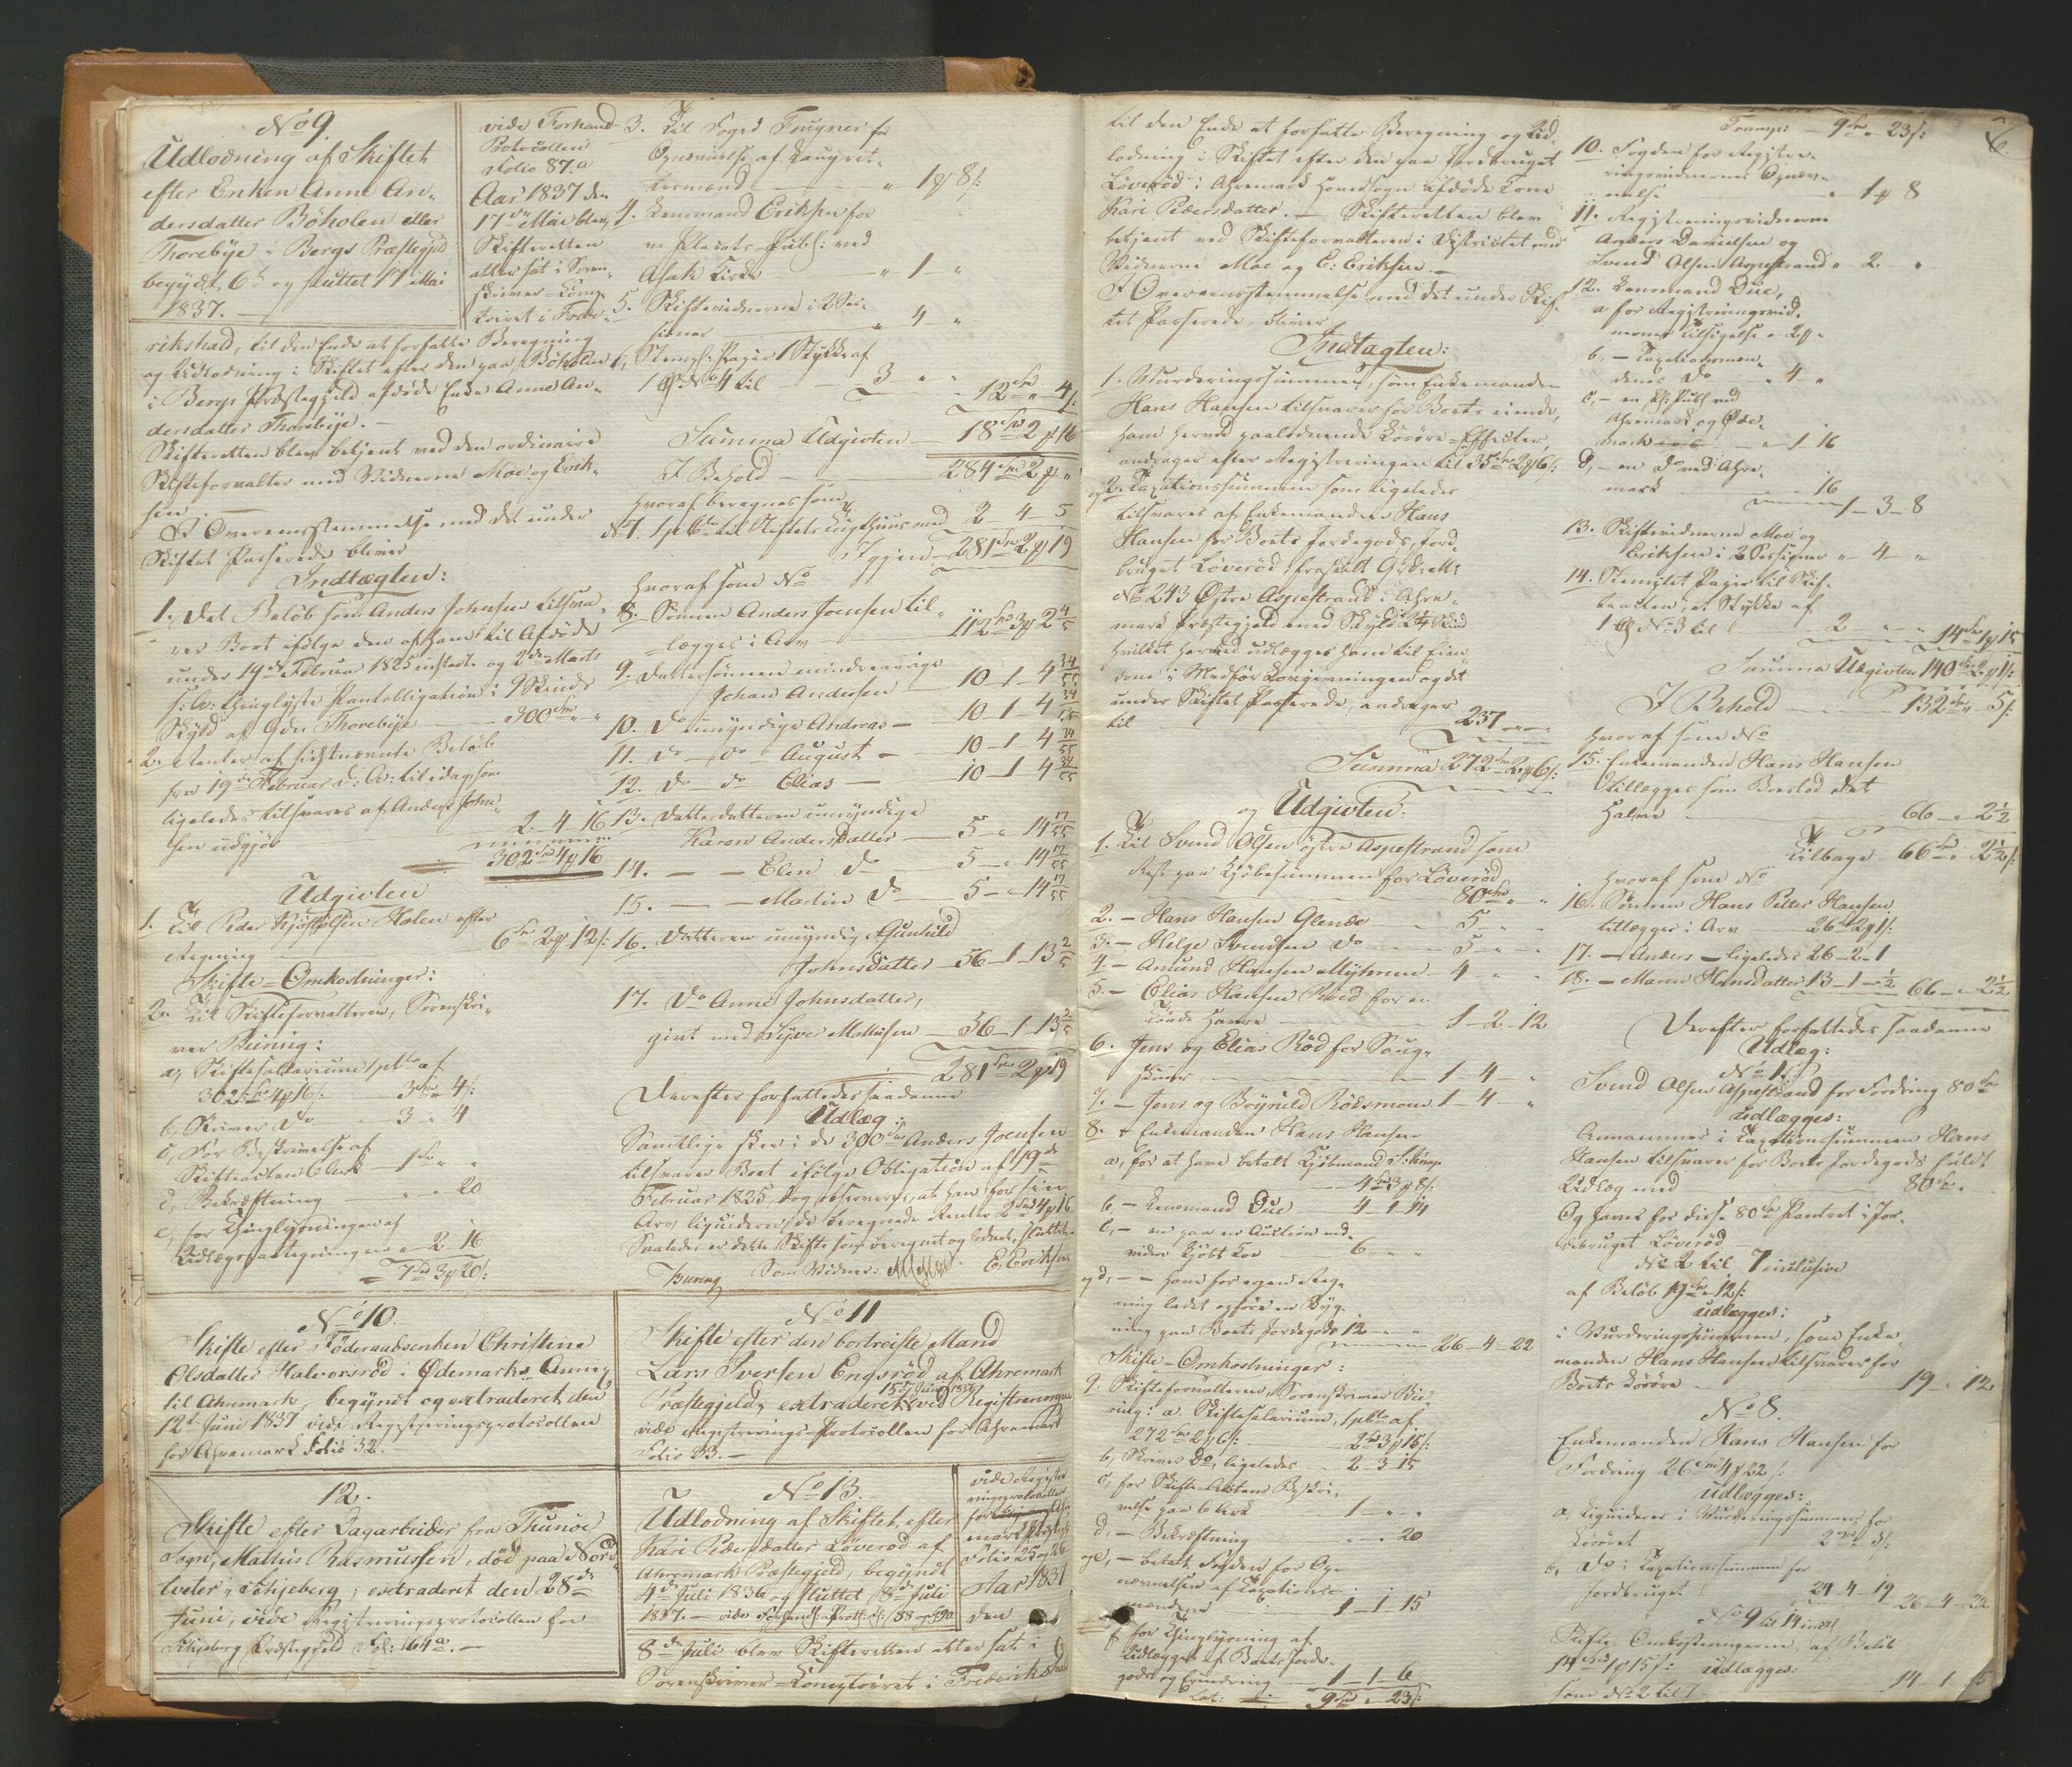 No 9.
Udlodning af Skiftet
efter Enken Anne An-
dersdatter Böholen eller
Thorebÿe i Bergs Præstegjeld
begÿndt 6te og sluttet 17 Mai
1837.
vide Forhand-
Protocollen
Folio 87.a
Aar 1837 den
17de Mai blev
Skifteretten
atter sat i Soren-
skriver-Comp-
toiret i Frede-
rikshald, til den Ende at forfatte Beregning
og Udlodning i Skiftet efter den paa Böholen
i Bergs Præstegjeld afdöde Enke Anne An-
dersdatter Thorebÿe.
Skifteretten blev betjent ved den ordinaire
Skifteforvalter med Vidnerne Moe og Erik-
sen.
I Overensstemmelse med det under
Skiftet Passerede bliver
Indtægten:
1. Det Belöb som Anders Johnsen tilsva-
rer Boet ifölge den af ham til Afdöde
under 19de Februar 1825 udstedte og 2den Marts
s: A: thinglÿste Pantobligation i 9 Skinds
Skÿld af Gden Thorebÿe 300 Spd
2. Renter af sidstnævnte Belöb
fra 19de Februar d: A: til idag, som
ligeledes tilsvares af Anders John-
sen udgjör 2 - 4 - 16
302 Spd 4 # 16
Udgivten
1. Til Peder Kjöstolsen Holen efter
Regning 6 Spd 2 # 12 s:
Skifte-Omkostninger:
2. Til Skifteforvalteren, Sorenskri-
ver Buring:
a, Skiftesallarium 1 pCto af
302 Spd 4 # 16 s: 3 Spd " 4 s:
b, Skriver Do 3 " 4
c, For Beskrivelse af
Skifteacten 6 Ark 1 Spd " "
d, Bekræftning " " 20
e, for Thinglÿsningen af
Udlægspantegningen " 2 - 16
7 Spd 3 # 20 s:
3. Til Foged Tougner for
Opnævnelse af Laugret-
tesmænd " 1 # 8 s:
4. Lensmand Eriksen for
en Placats Publ: ved
Asak Kirke " 1 "
5. Skiftevidnerne i 2 Ses-
sioner " 4 "
6, Stempl: Papir 1 Stÿkke af
1 Cl: No 4 til 3 " "
12 Spd " 4 s:
Summa Udgivten 18 Spd 2 # 16
I Behold 284 Spd 2 # "
Hvoraf beregnes som
No 7. 1 pCto til Stiftets Tugthuus med 2 - 4 - 5
Igjen 281 Spd 2 # 19
Hvoraf som No
8. Sönnen Anders Joensen til-
lægges i Arv 112 Spd 3 # 2 4/5
9. Dattersönnen mindreaarige
Johan Andersen 10 - 1 - 4 34/55
10. Do umÿndige Andreas 10 - 1 - 4 34/55
11. Do Do August 10 - 1 - 4 34/55
12. Do Do Elias 10 - 1 - 4 34/55
13. Datterdatteren umÿndige
Karen Andersdatter 5 - " 14 17/55
14. - - Elen Do 5 - " 14 17/55
15. - - Martin Do 5 - " 14 17/55
16. Datteren umÿndige Gunhild
Johnsdatter 56 - 1 - 13 2/5
17. Do Anne Johnsdatter,
givt med Sÿver Mathisen 56 - 1 - 13 2/5
281 Spd 2 # 19
Derefter forfattedes saadanne
Udlæg:
Samtlige skeer i de 300 Spd Anders Joensen
tilsvarer Boet ifölge Obligation af 19de
Februar 1825, dog observeres, at han for sin
Arv liqviderer de beregnede Renter 2 Spd 4 # 16
Saaledes er dette Skifte som beregnet og lodnet, sluttet.
Buring Som Vidner: M Moe. E. Eriksen
No 10.
Skifte efter Föderaadsenken Christine
Olsdatter Halvorsröd i Ödemarks Annex
til Ahremark, begÿndt og extraderet den
12te Juni 1837 vide Registreringsprotocollen
for Ahremark Folio 32.
No 11
Skifte efter den bortreiste Mand
Lars Iversen Engsröd af Ahremark
Præstegjeld, extraderet 15de Juni 1837 ved Registreringen
vide Registrerings-Protocollen for Ahremark
Folio 33.
12.
Skifte efter Dagarbeider fra Thunöe
Sogn, Mathis Rasmussen, död paa Nord-
tveter i Schjeberg; extraderet den 28de
Juni, vide Registreringsprotocollen for
Schjeberg Præstegjeld Fol: 164 a.
No 13.
Udlodning af Skiftet efter
Kari Pedersdatter Löveröd af
Ahremark Præstegjeld, begÿndt
4de Juli 1836 og sluttet 8de Juli
1837. vide Forhandl: Prot: f: 88 og 89a
vide Registre-
ringsprotocollen
for Ahre-
mark
Folio 25 og 26
Aar 1837
den
8de Juli blev Skifteretten atter sat i
Sorenskriver-Comptoiret i Frederikshald
6.
til den Ende at forfatte Beregning og Ud-
lodning i Skiftet efter den paa Jordbruget
Löveröd i Ahremark Hovedsogn afdöde Kone
Kari Pedersdatter. Skifteretten blev
betjent ved Skifteforvalteren i Districtet med
Vidnerne Moe og E: Eriksen.
I Overensstemmelse med det under Skif-
tet Passerede, bliver
Indtægten:
1. Vurderingssummen, som Enkemanden
Hans Hansen tilsvarer for Boets eiende,
ham herved paalodnende Lösöre-Effecter,
andrager efter Registreringen til 35 Spd 2 # 6 s:
og 2. Taxationssummen som ligeledes
tilsvares af Enkemanden Hans
Hansen for Boets Jordegods, Jord-
bruget Löveröd, fraskilt Gd: M:
No 243 Östre Aspestrand i Ahre-
mark Præstegjeld med Skÿld Skind
hvilket herved udlægges ham til Eien-
dom i Medför Lovgivningen og det
under Skiftet Passerede, andrager
til 237 " "
Summa 272 Spd 2 # 6 s:
og Udgivten:
1. Til Svend Olsen östre Aspestrand som
Rest paa Kjöbesummen for Löveröd
80 Spd " "
2. - Hans Hansen Glende 5 " "
3. - Helge Svendsen Do 5 " "
4. - Amund Hansen Mÿhrene 4 " "
5. - Elias Hansen Röed for en
Tönde Havre 1 - 2 - 12
6. Jens og Elias Röd for Saug-
skuur 1 - 4 - "
7. - Jens og Bÿnild Rödsmoen 1 - 4 - "
8. Enkemanden Hans Hansen
a, for at have betalt Kjöbmand
4 Spd 3 # 8 s:
b, - Lensmand Due 4 - 1 - 14
c, - en paa en Auction ud-
viden Kjöbt Koe 6 " "
og d, - - have for egen Reg-
ning ladet opföre en Bÿg-
ning paa Boets Jordegods 12 " "
26 - 4 - 22
Skifte-Omkostninger:
9. Skifteforvalteren, Sorenskriver Bu-
ring: a. Skiftesalarium, 1 pCto af
272 Spd 2 # 6 s: 2 Spd 3 # 15 s:
b, Skriver Do, ligeledes 2 - 3 - 15
c, for Skifte-Actens Beskri-
velse paa 6 Ark 1 - " "
d, - Bekræftning " " 20
og e, - betalt Fogden for Op-
nævnelsen af Taxations-
mændene 1 - 1 - 15
f for Thinglÿsning af
Udlægget af Boets Jorde-
gods og Erindring 1 - 1 - 6
Lat: 9 Spd " 23 s:
Transp: 9 Spd " 23 s:
10. Fogden for Registre-
ringsvidnernes Opnæv-
nelse " 1 # 8
11. Registreringsvidnerne
Anders Danielsen og
Svend Olsen Aspestrand " 2 - "
12. Lensmand Due,
a for Registreringsvid-
nernes Tilsigelse " 2 # "
b, - Taxationsmæn-
denes Do " 4 - "
c, - en Pl: Publ: ved
Ahremark og Öde-
mark " 1 - 16
d, - en Do ved Ahre-
mark " - 16
1 - 3 - 8
13. Skiftevidnerne Moe og
Eriksen i 2 Sessioner " 4 - "
14. Stemplet Papir til Skif-
teacten, et Stÿkke af
1 Cl: No 3 til 2 " "
14 Spd 1 # 15
Summa Udgivten 140 Spd 2 # 1 s:
I Behold 132 Spd " 5 s:
Hvoraf som No
15. Enkemanden Hans Hansen
tillægges som Boeslod det
Halve 66 - " 2 1/2
Tilbage 66 Spd " 2 1/2 s:
Hvoraf som No
16. Sönnen Hans Petter Hansen
tillægges i Arv 26 Spd 2 # 1 s:
17. - Anders - ligeledes 26 - 2 - 1
18. - Maren Hansdatter 13 - 1 - 1/2
66 - " 2 1/2
Derefter forfattedes saadanne
Udlæg:
No 1.
Svend Olsen Aspestrand for Fordring 80 Spd
udlægges:
Annammer i Taxationssummen Hans
Hansen tilsvarer for Boets Jordegods fuldt
Udlæg med 80 Spd "
Og haves for disse 80 Spd Pantret i Jor-
debruget Löveröd
No 2 til 7 inclusive
af Belöb 19 Spd " 12 s:
udlægges:
i Vurderingssummen, som Enke-
manden Hans Hansen tilsvarer for
Boets Lösöre 19 - " 12
No 8.
Enkemanden Hans Hansen for
Fordring 26 Spd 4 # 22 s:
udlægges:
a, Liqviderer i Vurderingssummen for
Lösöret 2 Spd " 3 s:
b, Do i Taxationssummen for
Jordbruget 24 - 4 - 19
26 - 4 - 22
No 9 til 14 incl:
Skifte-Omkostningerne, af Belöb
14 Spd 1 # 15 s: udlægges:
som No 2 til 7 14 - 1 - 15